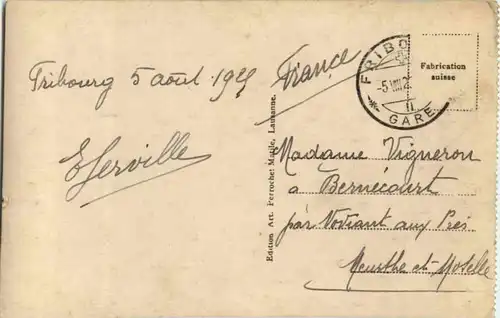 Fribourg 5 août 192
France
E Serville
Edition Art. Perrochet Matile, Lausanne.
FRIBO
-5.VIII.2
II
GARE
Fabrication
suisse
Madame Vigneron
à Bernécourt
par Novéant aux Prés
Meurthe-et-Moselle